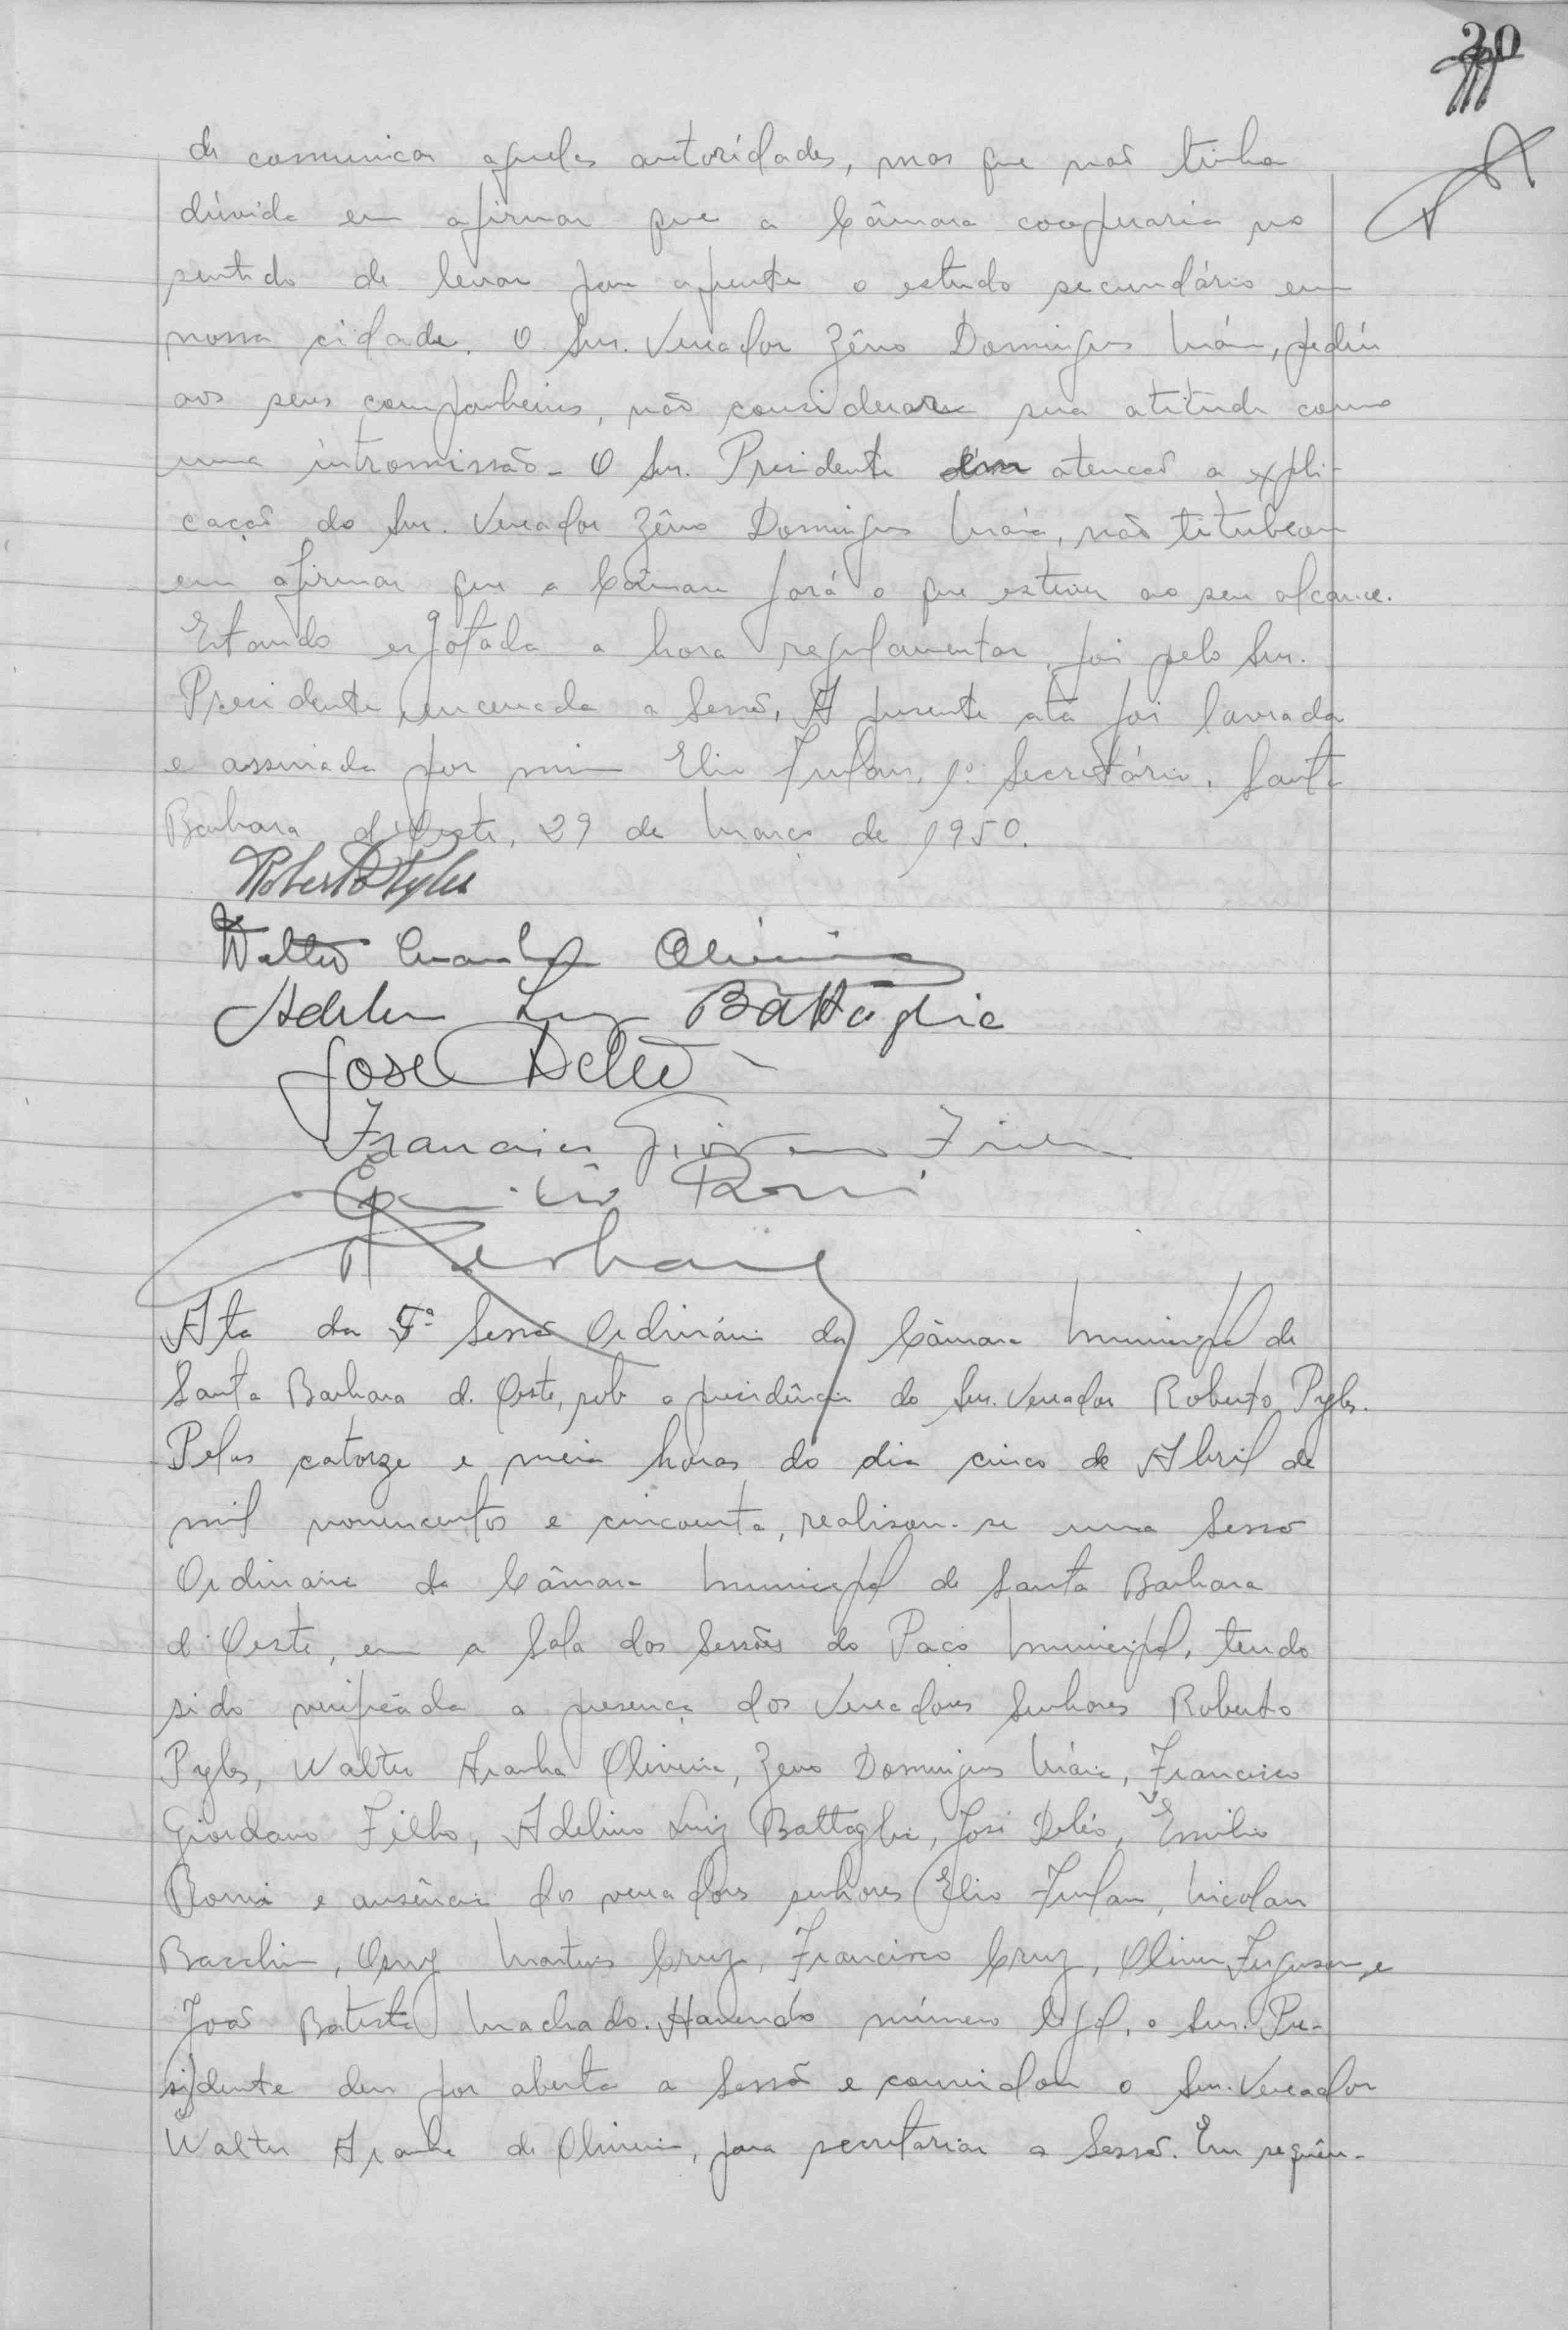 20
de comunicar aquelas autoridades, mas que não tinha
dúvida em afirmar que a Câmara cooperaria no
sentido de levar para a frente o estudo secundário em
nossa cidade. O Snr. Vereador Zêno Domingues Máia, pediu
aos seus companheiros, não considerarem sua atitude como
uma intromissão - O Snr. Presidente em atenção a expli-
cação do Snr. Vereador Zêno Domingues Máia, não titubeou
em afirmar que a Câmara fará o que estiver ao seu alcance.
Estando esgotada a hora regulamentar, foi pelo Snr.
Presidente, encerrada a Sessão, A presente ata foi lavrada
e assinada por mim Elio Furlan, 1º Secretário. Santa
Barbara d'Oeste, 29 de Março de 1950.
Roberto Pyles
Walter Aranha Oliveira
Adelino Luiz Battaglia
José Deleo
Francisco Giordano Filho
Emilio Romi
Ata da 5ª Sessão Ordinária da Câmara Municipal de
Santa Barbara d. Oeste, sob a presidência do Snr. Vereador Roberto Pyles.
Pelas catorze e meia horas do dia cinco de Abril de
mil novencentos e cincoenta, realisou-se uma Sessão
Ordinaria da Câmara Municipal de Santa Barbara
d'Oeste, em a Sala das Sessões do Paço Municipal, tendo
sido verificada a presença dos Vereadores Senhores Roberto
Pyles, Walter Aranha Oliveira, Zeno Domingues Máia, Francisco
Giordano Filho, Adelino Luiz Battaglia, José Deléo, Emilio
Romi e ausência dos vereadores senhores Elio Furlan, Nicolau
Bacchin, Martins Cruz, Francisco Cruz, Oliver Ferguson e
João Batista Machado. Havendo número legal, o Snr. Pre-
sidente deu por aberta a Sessão e convidou o Snr. Vereador
Walter Aranha de Oliveira, para secretariar a Sessão. Em sequên-